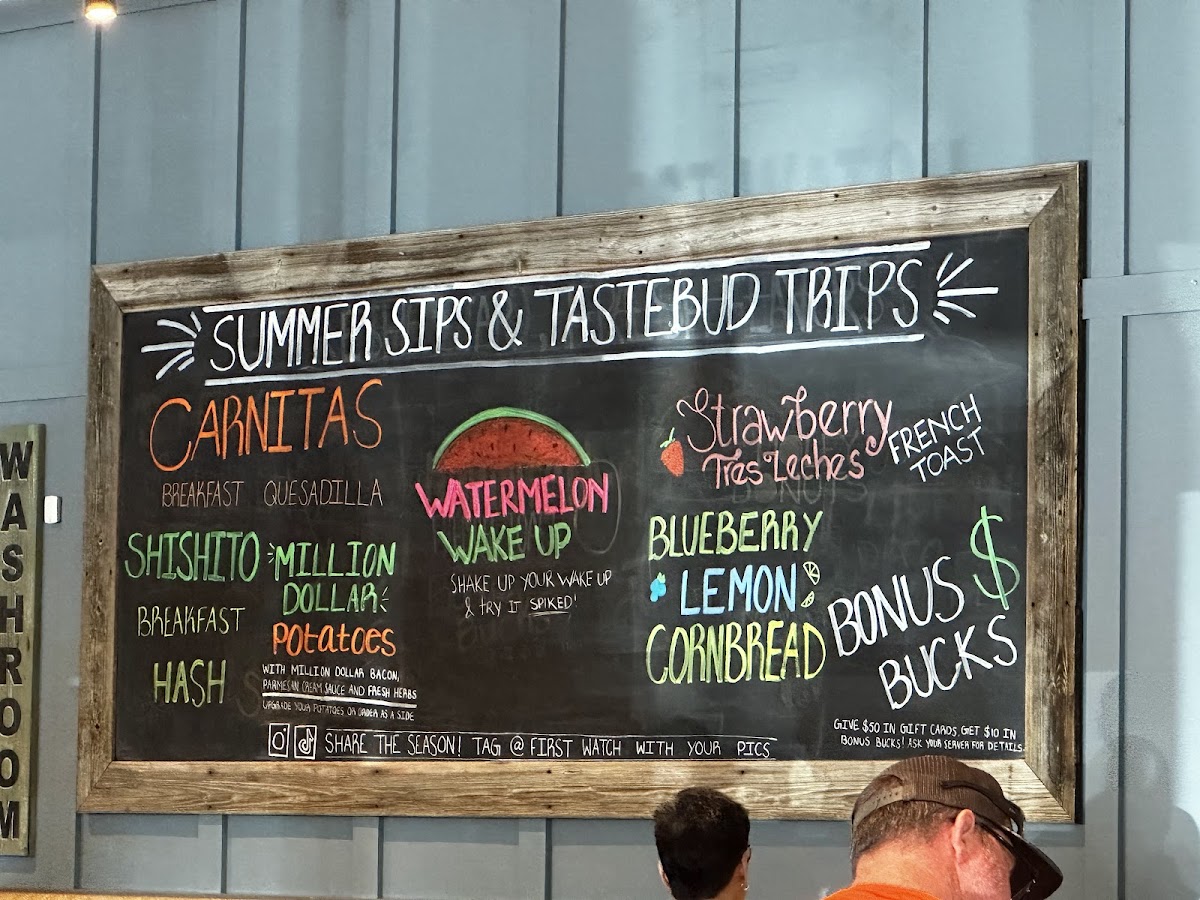 SUMMER SIPS & TASTEBUD TRIPS
CARNITAS
BREAKFAST QUESADILLA
SHISHITO
BREAKFAST
HASH
MILLION
DOLLAR
POTATOES
WITH MILLION DOLLAR BACON,
PARMESAN CREAM SAUCE AND FRESH HERBS
UPGRADE YOUR POTATOES OR ORDER AS A SIDE
WATERMELON
WAKE UP
SHAKE UP YOUR WAKE UP
& TRY IT SPIKED!
Strawberry
Tres Leches
FRENCH
TOAST
BLUEBERRY
LEMON
CORNBREAD
$
BONUS
BUCKS
GIVE $50 IN GIFT CARDS, GET $10 IN
BONUS BUCKS! ASK YOUR SERVER FOR DETAILS.
SHARE THE SEASON! TAG @ FIRST WATCH WITH YOUR PICS
WASHROOM